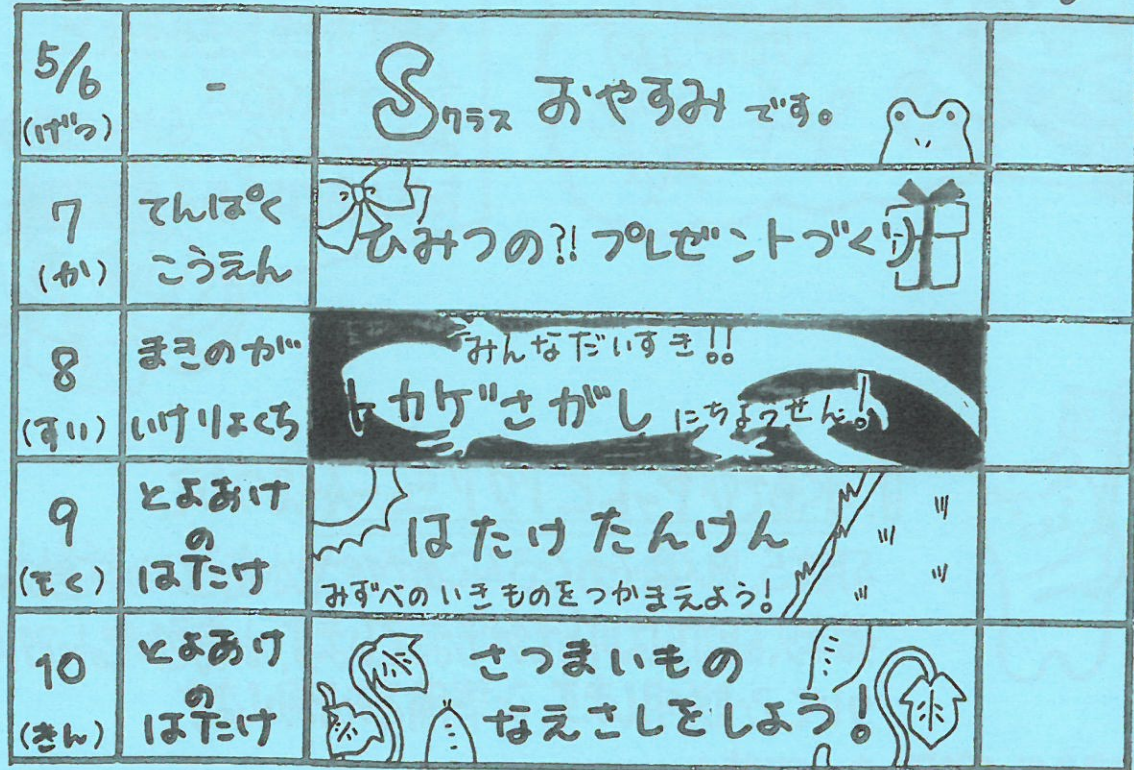 5/6
(げつ)
-
Sクラス おやすみ です。
7
(か)
てんぱく
こうえん
ひみつの?! プレゼントづくり
8
(すい)
まきのが
いけりょくち
みんなだいすき!!
トカゲさがし にちょうせん!
9
(もく)
とよあけ
の
はたけ
はたけ たんけん
みずべのいきものをつかまえよう!
10
(きん)
とよあけ
の
はたけ
さつまいもの
なえさしをしよう!